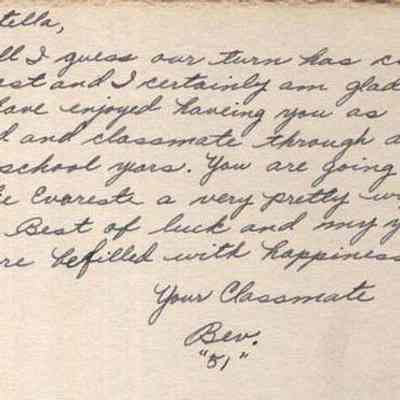 tella,
ll I guess our turn has c
st and I certainly am glad
have enjoyed haveing you as
d and classmate through a
school yars. You are going
e Evoreste a very pretty w
Best of luck and my y
re befilled with happiness
Your Classmate
Bev.
"51"